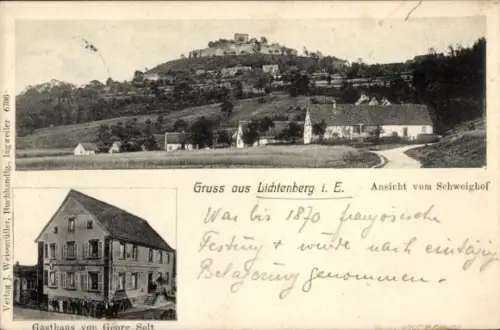 Gruss aus Lichtenberg i. E.
Ansicht vom Schweighof
War bis 1870 französische
Festung + wurde nach eintägig
Belagerung genommen.
Gasthaus von Georg Solt
Verlag J. Weissmüller, Buchhandlg., Ingweiler 6786